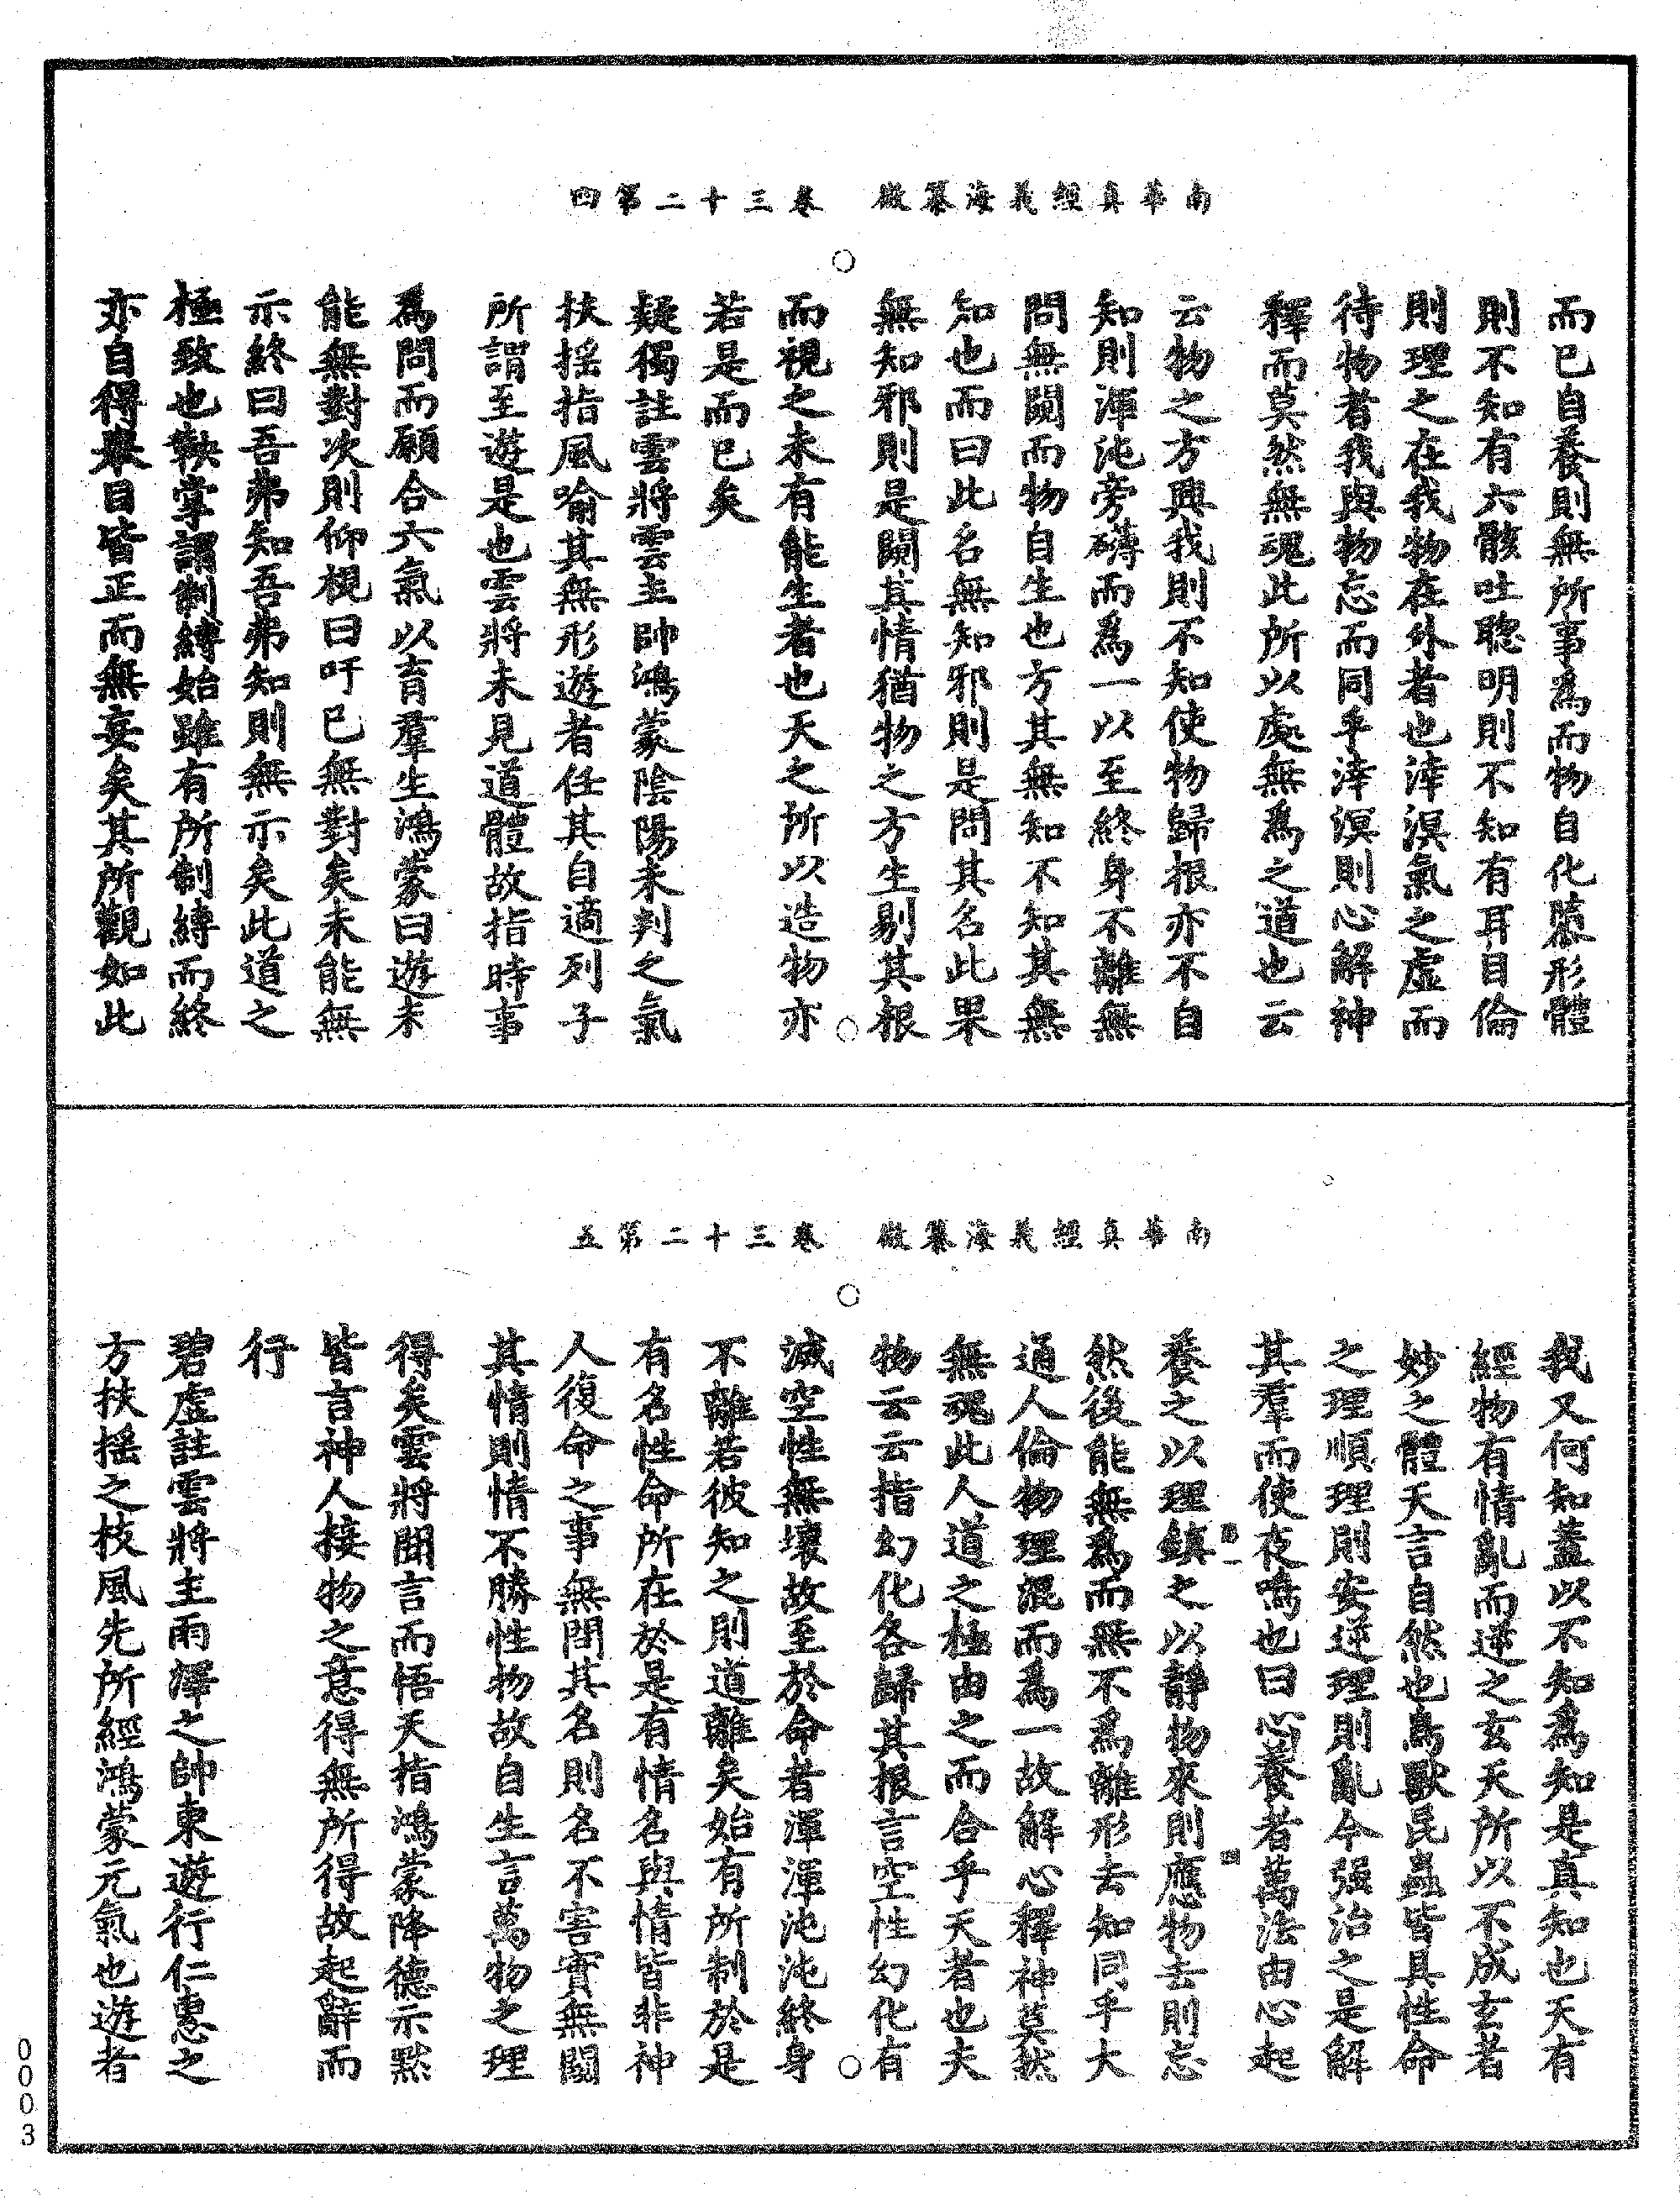 南華真經義海纂微　卷三十二第四
而已自養則無所事為而物自化墮形體
則不知有六骸吐聰明則不知有耳目倫
則理之在我物在外者也涬溟氣之虛而
待物者我與物忘而同乎涬溟則心解神
釋而莫然無魂此所以處無為之道也云
云物之方興我則不知使物歸根亦不自
知則渾沌旁礴而為一以至終身不離無
問無闚而物自生也方其無知不知其無
知也而曰此名無知邪則是問其名此果
無知邪則是闚其情猶物之方生剔其根
而視之未有能生者也天之所以造物亦
若是而已矣
疑獨註雲將雲主帥鴻蒙陰陽未判之氣
扶搖指風喻其無形遊者任其自適列子
所謂至遊是也雲將未見道體故指時事
為問而願合六氣以育羣生鴻蒙曰遊未
能無對次則仰視曰吁已無對矣未能無
示終曰吾弗知吾弗知則無示矣此道之
極致也鞅掌謂制縛始雖有所制縛而終
亦自得舉目皆正而無妄矣其所觀如此
南華真經義海纂微　卷三十二第五
我又何知蓋以不知為知是真知也天有
經物有情亂而逆之玄天所以不成玄者
妙之體天言自然也鳥獸昆蟲皆具性命
之理順理則安逆理則亂今強治之是解
其羣而使夜鳴也曰心養者萬法由心起
養之以理鎮之以靜物來則應物去則忘
然後能無為而無不為離形去知同乎大
通人倫物理混而為一故解心釋神莫然
無魂此人道之極由之而合乎天者也夫
物云云指幻化各歸其根言空性幻化有
滅空性無壞故至於命者渾渾沌沌終身
不離若彼知之則道離矣始有所制於是
有名性命所在於是有情名與情皆非神
人復命之事無問其名則名不害實無闚
其情則情不勝性物故自生言萬物之理
得矣雲將聞言而悟天指鴻蒙降德示默
皆言神人接物之意得無所得故起辭而
行
碧虛註雲將主雨澤之帥東遊行仁惠之
方扶搖之枝風先所經鴻蒙元氣也遊者
0003